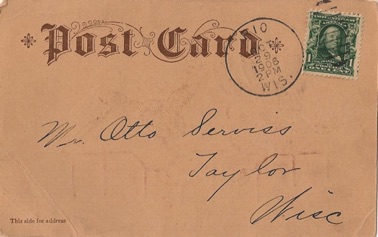 Post Card
IO
OCT
29
1906
2 PM
WIS.
1
1
Mr Otto Serviss
Taylor
Wisc
This side for address